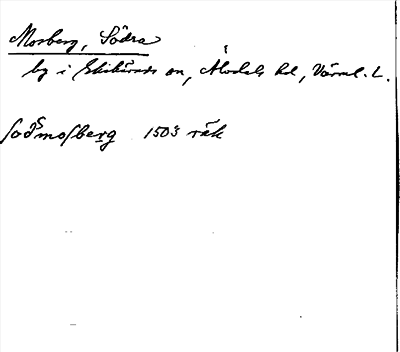 Mosberg, Södra
by i Ekshärads sn, Älvdals hd, Värml. l.
sodsmosberg 1503 räk